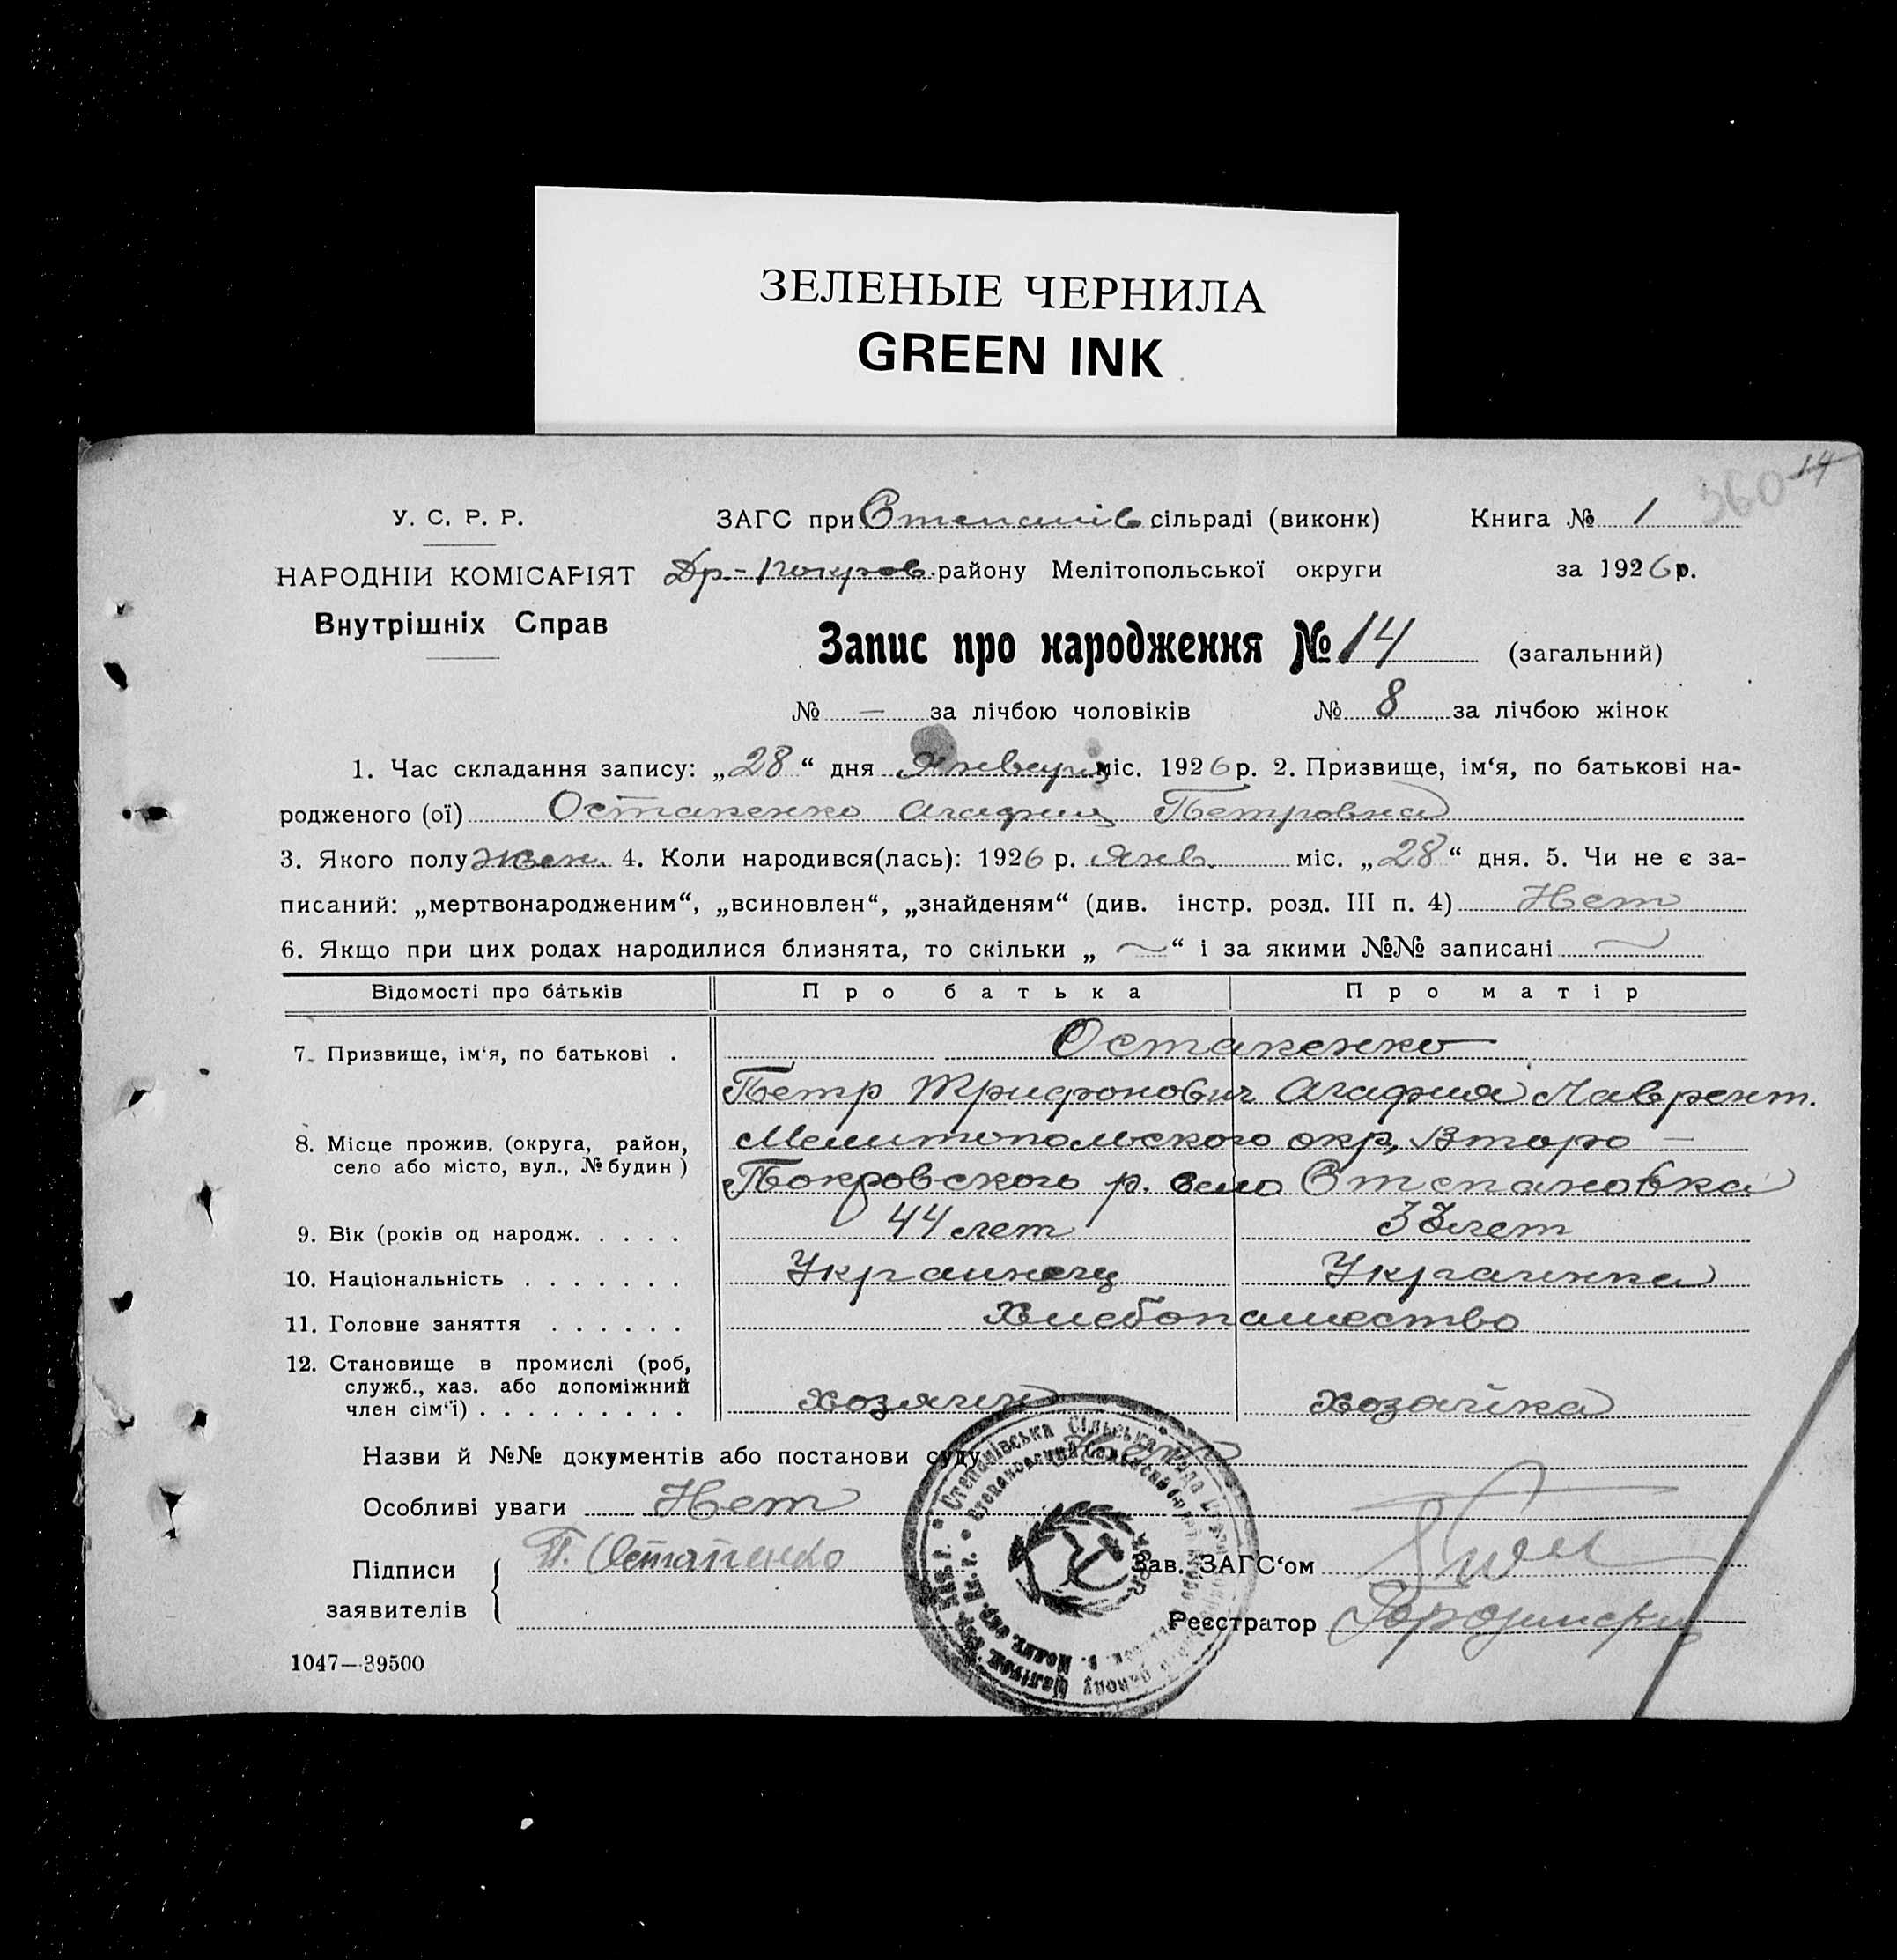 ЗЕЛЕНЫЕ ЧЕРНИЛА
GREEN INK
360 14
У. С. Р. Р.
ЗАГС при Степанів сільраді (виконк) Книга № 1
НАРОДНІИ КОМІСАРІЯТ
Др.-Покров. району Мелітопольської округи за 1926 р.
Внутрішніх Справ
Запис про народження № 14 (загальний)
№ — за лічбою чоловіків № 8 за лічбою жінок
1. Час складання запису: „28“ дня Января міс. 1926 р. 2. Призвище, ім‘я, по батькові на-
родженого (ої) Остапенко Агафия Петровна
3. Якого полу жен. 4. Коли народився(лась): 1926 р. Янв. міс. „28“ дня. 5. Чи не є за-
писаний: „мертвонародженим“, „всиновлен“, „знайденям“ (див. інстр. розд. III п. 4) Нет
6. Якщо при цих родах народилися близнята, то скільки „ ~ “ і за якими №№ записані ~
Відомості про батьків Про батька Про матір
7. Призвище, ім‘я, по батькові . Остапенко
Петр Трифонович Агафия Лаврент.
8. Місце прожив. (округа, район, Мелитопольского окр, Второ —
село або місто, вул., № будин) Покровского р. село Степановка
9. Вік (років од народж. . . . . 44 лет 33 лет
10. Національність . . . . . . . Украинец Украинка
11. Головне заняття . . . . . . Хлебопашество
12. Становище в промислі (роб,
служб., хаз. або допоміжний
член сім‘ї) . . . . . . . . . хозяин хозяйка
Назви й №№ документів або постанови суду Нет
Особливі уваги Нет
Підписи
заявителів
П. Остапенко
Зав. ЗАГС‘ом
Реєстратор
Степанівська Сільська Рада
1047—39500